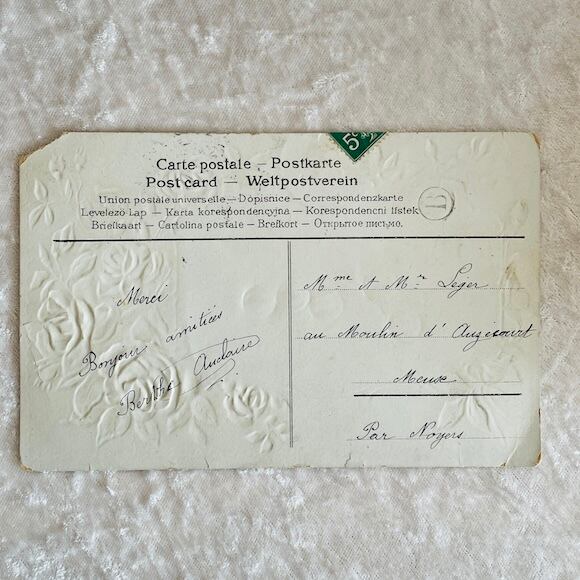 5c
Carte postale – Postkarte
Post card – Weltpostverein
Union postale universelle – Dopisnice – Correspondenzkarte
Levelező Lap – Karta korespondencyjna – Korespondenčni listek
Briefkaart – Cartolina postale – Brefkort – Открытое письмо.
B
Merci
Bonjour amitiés
Berthe Auclaire
Mme et Mr Leger
au Moulin d'
Meuse
Par Noyers